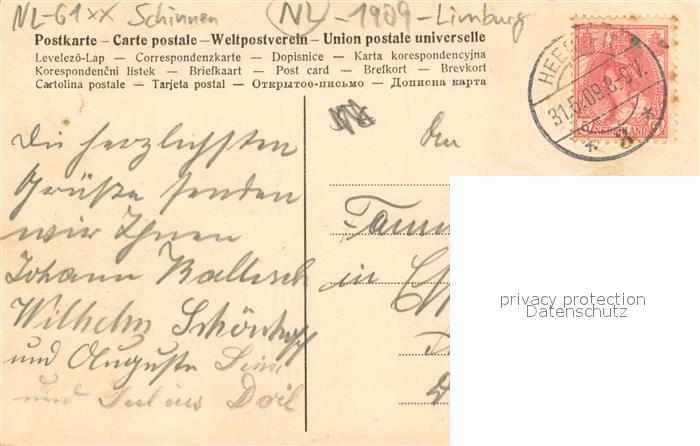 NL-61xx Schinnen (NL) -1909-Limburg
Postkarte – Carte postale – Weltpostverein – Union postale universelle
Levelező-Lap — Correspondenzkarte — Dopisnice — Karta korespondencyjna
Korespondenční lístek — Briefkaart — Post card — Brefkort — Brevkort
Cartolina postale — Tarjeta postal — Открытое-письмо — Дописна карта
HEE
31.5.09.8-9V.
5 NEDERLAND
Die herzlichsten
Grüße senden
wir Ihnen
Johann
Wilhelm Schönhoff
und Auguste
und Julius
den
in
privacy protection
Datenschutz